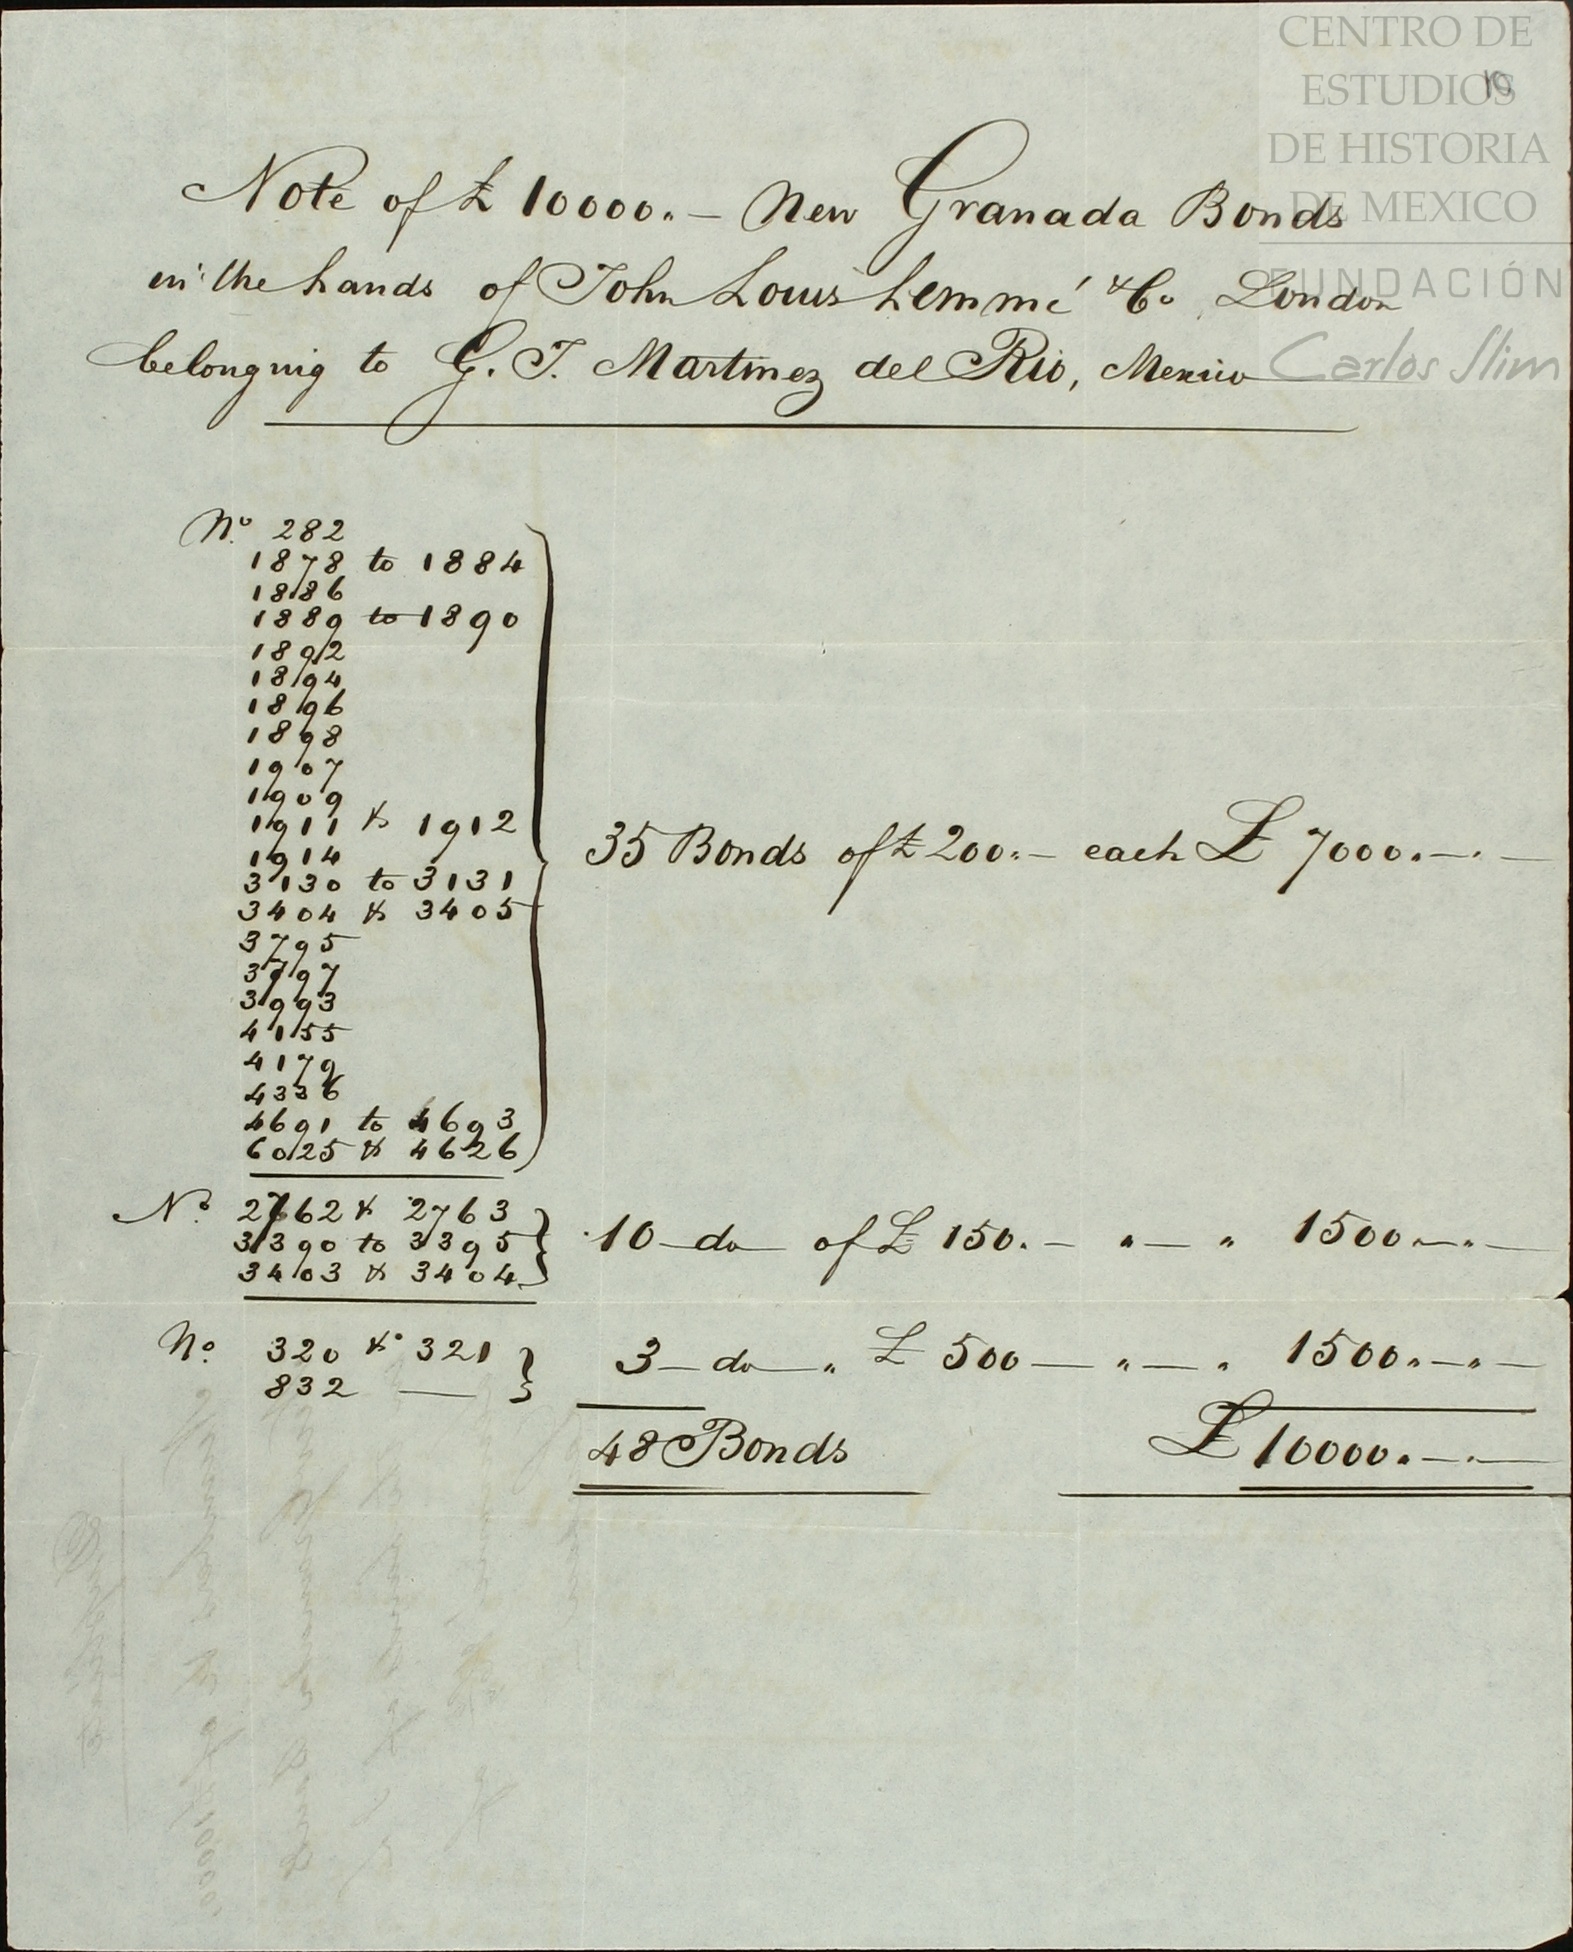 CENTRO DE
ESTUDIOS
DE HISTORIA
DE MEXICO
FUNDACIÓN
Carlos Slim
10
Note of £ 10000.- New Granada Bonds
in the hands of John Louis Lemmé & Co, London
belonging to G. J. Martinez del Rio, Mexico
No. 282
1878 to 1884
1886
1889 to 1890
1892
1894
1896
1898
1907
1909
1911 & 1912
1914
3130 to 3131
3404 & 3405
3795
3797
3993
4155
4179
4336
4691 to 4693
6025 & 4626
35 Bonds of £ 200.- each £ 7000.-.-
No. 2762 & 2763
3390 to 3395
3403 & 3404
10 - do - of £ 150.- " - " 1500.-.-
No. 320 & 321
832 —
3 - do - " £ 500 - " - " 1500.-"-
48 Bonds £ 10000.-.-